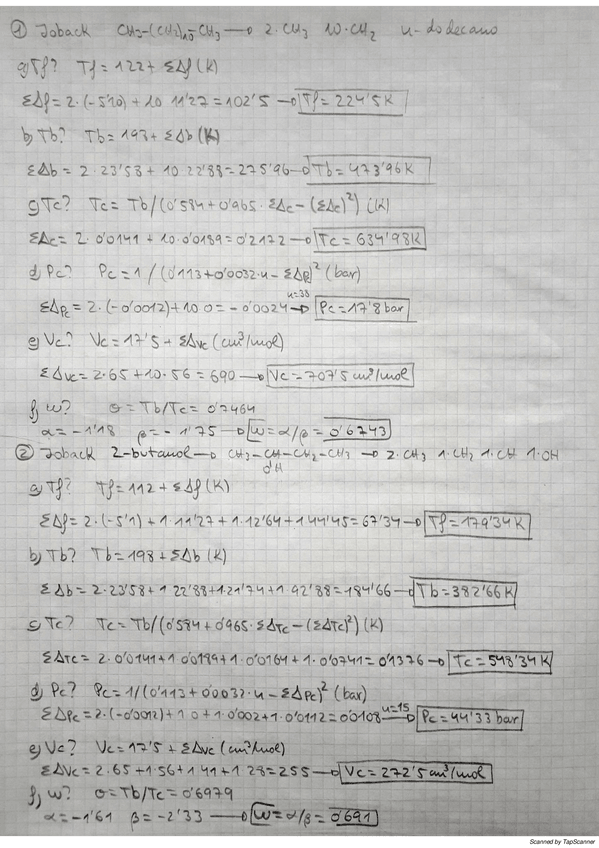 ① Joback CH3-(CH2)10-CH3 → 2·CH3 10·CH2 n-dodecano
a) Tf? Tf = 122 + ΣΔf (K)
ΣΔf = 2·(-5'10) + 10·11'27 = 102'5 → Tf = 224'5K
b) Tb? Tb = 198 + ΣΔb (K)
ΣΔb = 2·23'58 + 10·22'88 = 275'96 → Tb = 473'96K
c) Tc? Tc = Tb/(0'584 + 0'965·ΣΔc - (ΣΔc)²) (K)
ΣΔc = 2·0'0141 + 10·0'0189 = 0'2172 → Tc = 634'98K
d) Pc? Pc = 1/(0'113 + 0'0032·n - ΣΔp)² (bar)
ΣΔPc = 2·(-0'0012) + 10·0 = -0'0024 n=38 → Pc = 17'8 bar
e) Vc? Vc = 17'5 + ΣΔvc (cm³/mol)
ΣΔvc = 2·65 + 10·56 = 690 → Vc = 707'5 cm³/mol
f) w? θ = Tb/Tc = 0'7464
α = -1'18 β = -1'75 → w = α/β = 0'6743
② Joback 2-butanol → CH3-CH-CH2-CH3 → 2·CH3 1·CH2 1·CH 1·OH
OH
a) Tf? Tf = 112 + ΣΔf (K)
ΣΔf = 2·(-5'1) + 1·11'27 + 1·12'64 + 1·44'45 = 67'34 → Tf = 179'34K
b) Tb? Tb = 198 + ΣΔb (K)
ΣΔb = 2·23'58 + 1·22'88 + 1·21'74 + 1·92'88 = 184'66 → Tb = 382'66K
c) Tc? Tc = Tb/(0'584 + 0'965·ΣΔTc - (ΣΔTc)²) (K)
ΣΔTc = 2·0'0141 + 1·0'0189 + 1·0'0164 + 1·0'0741 = 0'1376 → Tc = 548'34K
d) Pc? Pc = 1/(0'113 + 0'0032·n - ΣΔPc)² (bar)
ΣΔPc = 2·(-0'0012) + 1·0 + 1·0'002 + 1·0'0112 = 0'0108 n=15 → Pc = 44'33 bar
e) Vc? Vc = 17'5 + ΣΔvc (cm³/mol)
ΣΔVc = 2·65 + 1·56 + 1·41 + 1·28 = 255 → Vc = 272'5 cm³/mol
f) w? θ = Tb/Tc = 0'6979
α = -1'61 β = -2'33 → w = α/β = 0'691
Scanned by TapScanner